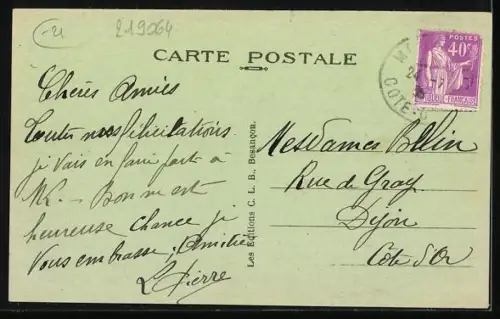 -21
219064
CARTE POSTALE
POSTES
40c
Chères Amies
Toutes nos félicitations
je vais en faire part à
Bonne et
heureuse chance je
Vous embrasse, Amitiés
Pierre
Les Editions C. L. B., Besançon.
Mesdames
Rue de Gray
Dijon
Côte d'Or
COTE-D